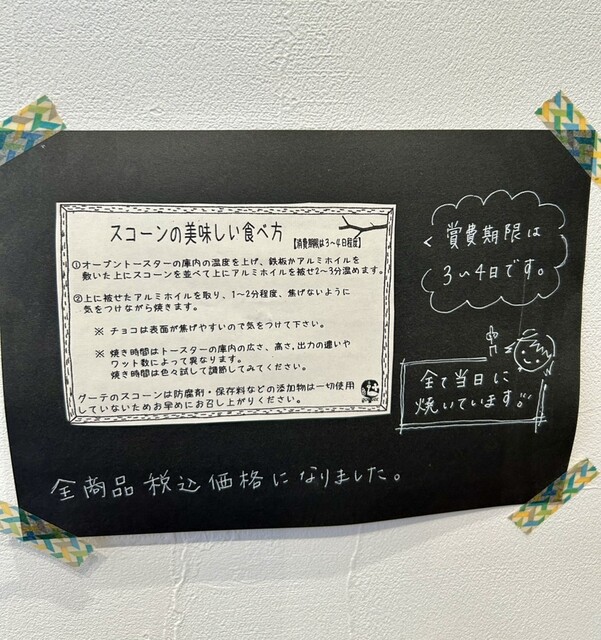 スコーンの美味しい食べ方
【消費期限は3~4日程度】
①オーブントースターの庫内の温度を上げ、鉄板かアルミホイルを
敷いた上にスコーンを並べて上にアルミホイルを被せ2~3分温めます。
②上に被せたアルミホイルを取り、1~2分程度、焦げないように
気をつけながら焼きます。
※ チョコは表面が焦げやすいので気をつけて下さい。
※ 焼き時間はトースターの庫内の広さ、高さ、出力の違いや
ワット数によって異なります。
焼き時間は色々試して調節してみて下さい。
グーテのスコーンは防腐剤・保存料などの添加物は一切使用
していないためお早めにお召し上がりください。
賞費期限は
3~4日です。
全て当日に
焼いています!!
全商品税込価格になりました。